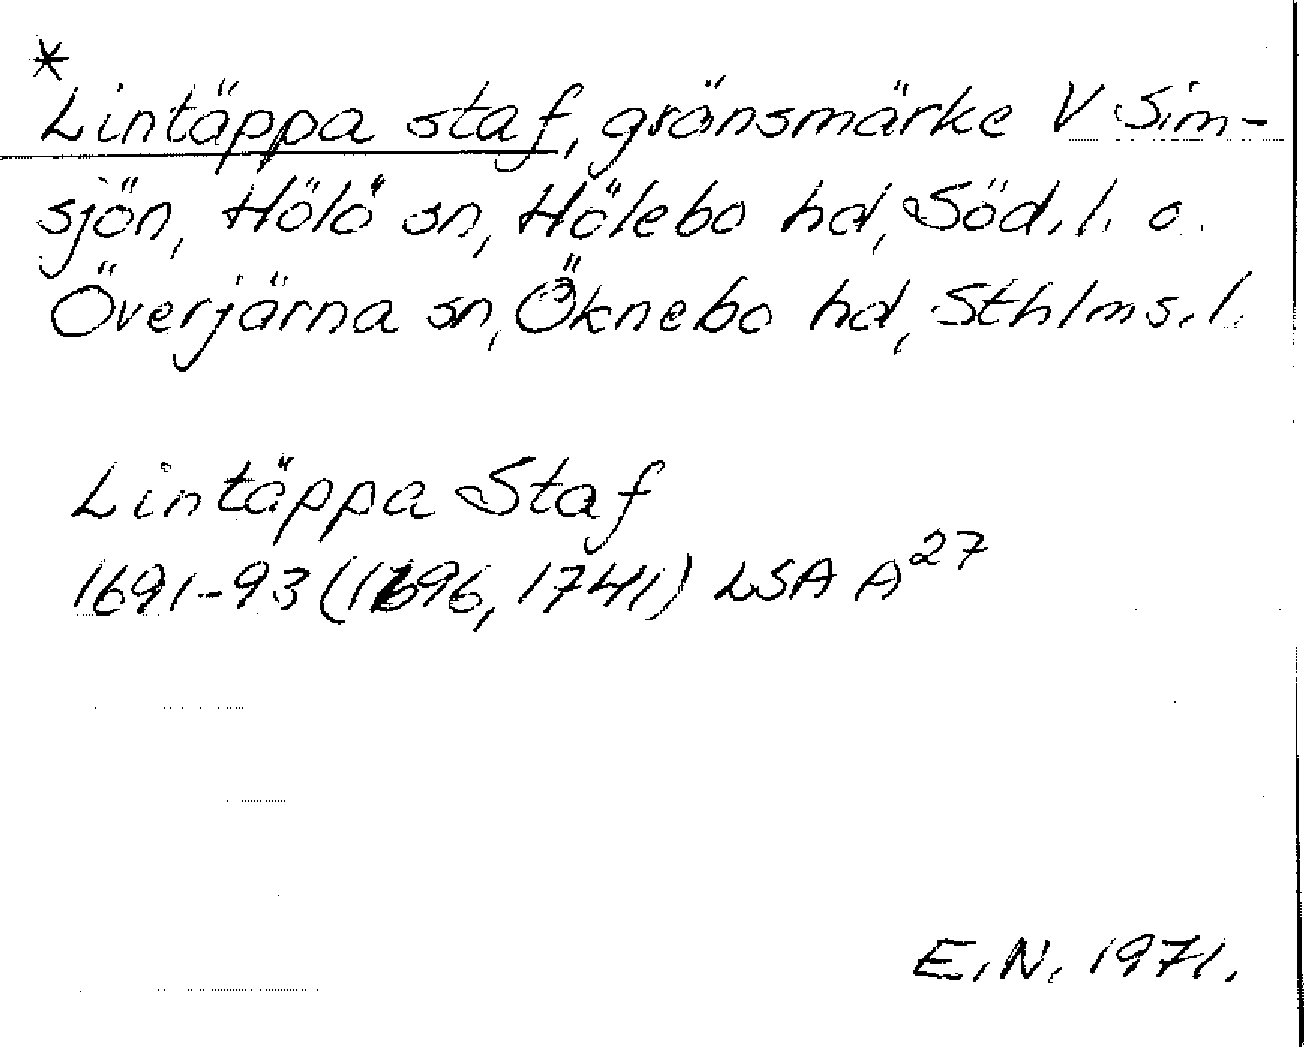 *
Lintäppa staf, gränsmärke V Sim-
sjön, Hölö sn, Hölebo hd, Söd. l. o.
Överjärna sn, Öknebo hd, Sthlms. l.
Lintäppa Staf
1691-93 (1696, 1741) LSA A27
E. N. 1971.